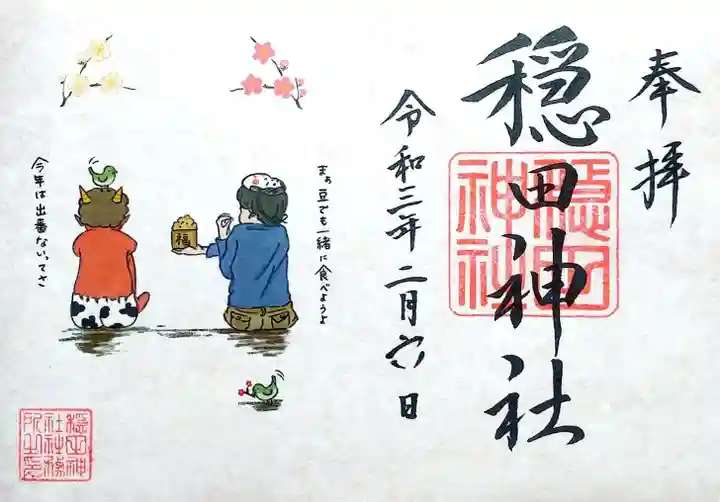 奉拝
穏田神社
穏田
神社
令和三年二月六日
まぁ 豆でも一緒に食べようよ
福
今年は出番ないってさ
穏田神
社社務
所之印